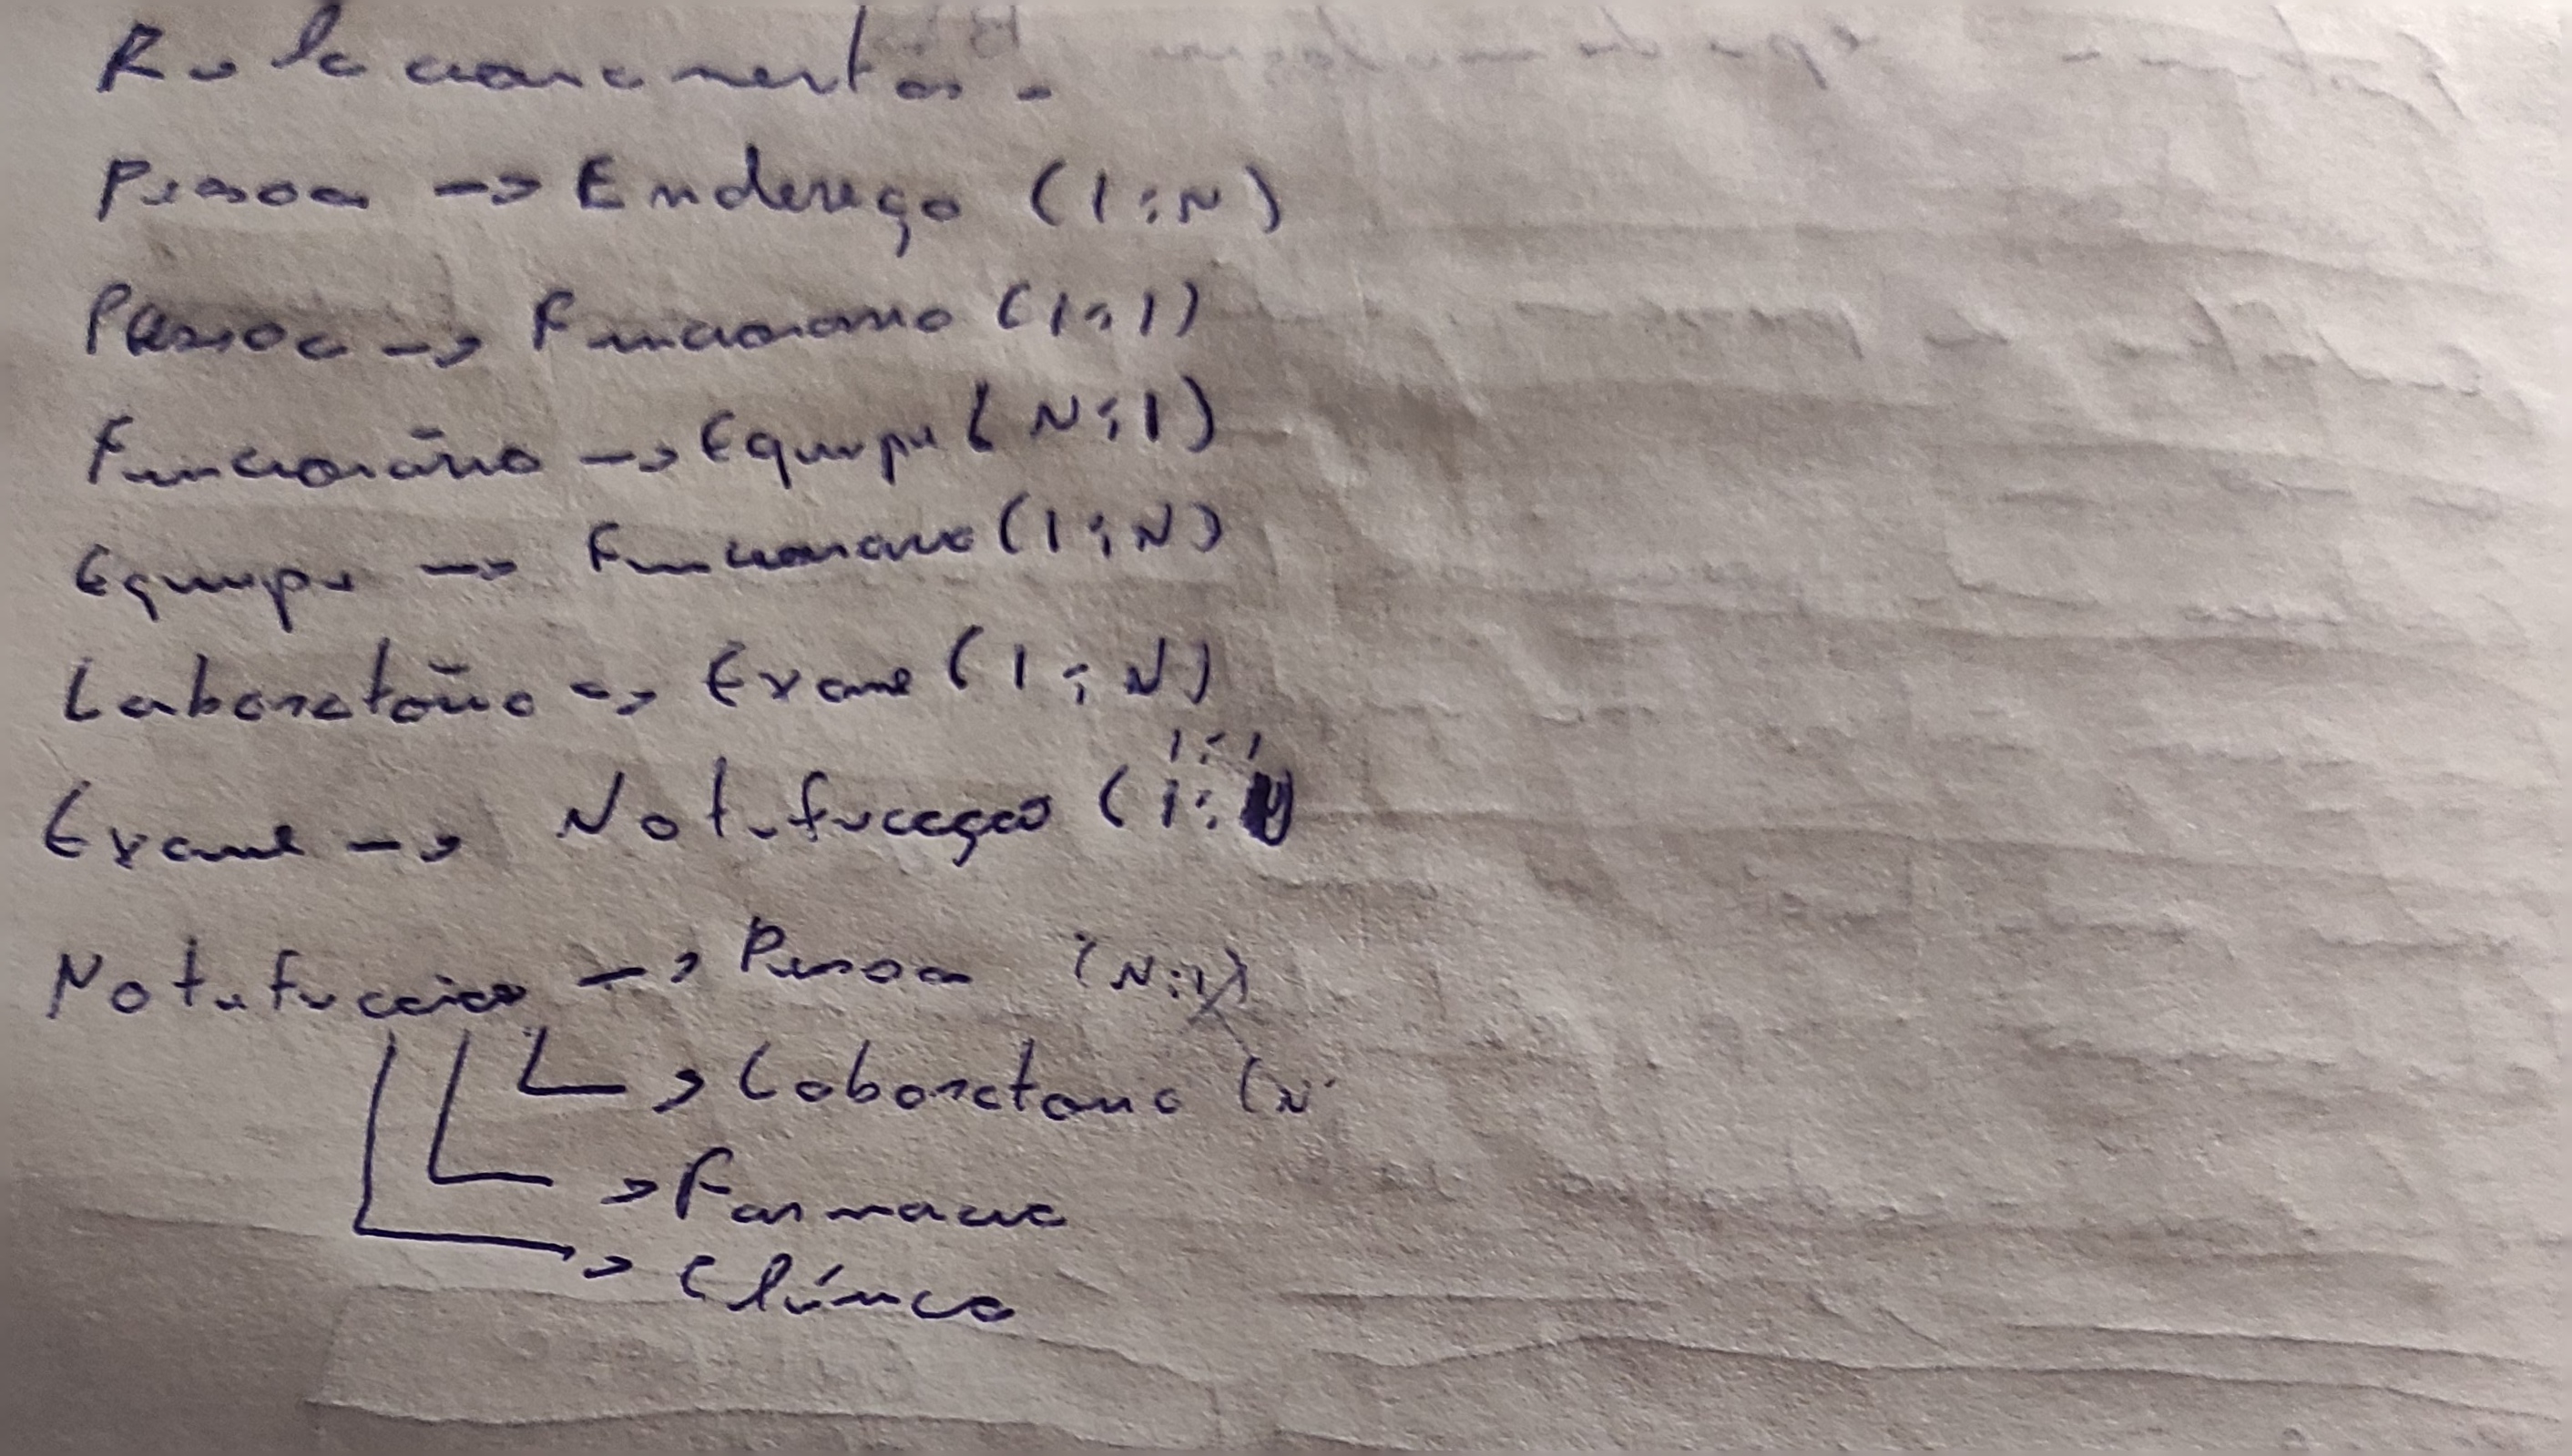 Relacionamentos.
Pessoa -> Endereço (1:N)
Pessoa -> Funcionario (1:1)
Funcionário -> Equipe (N:1)
Equipe -> Funcionario (1:N)
Laboratório -> Exame (1:N)
1:1
Exame -> Notificação (1:
Notificação -> Pessoa (N:1)
-> Laboratorio (N
-> Farmacia
-> Clínica